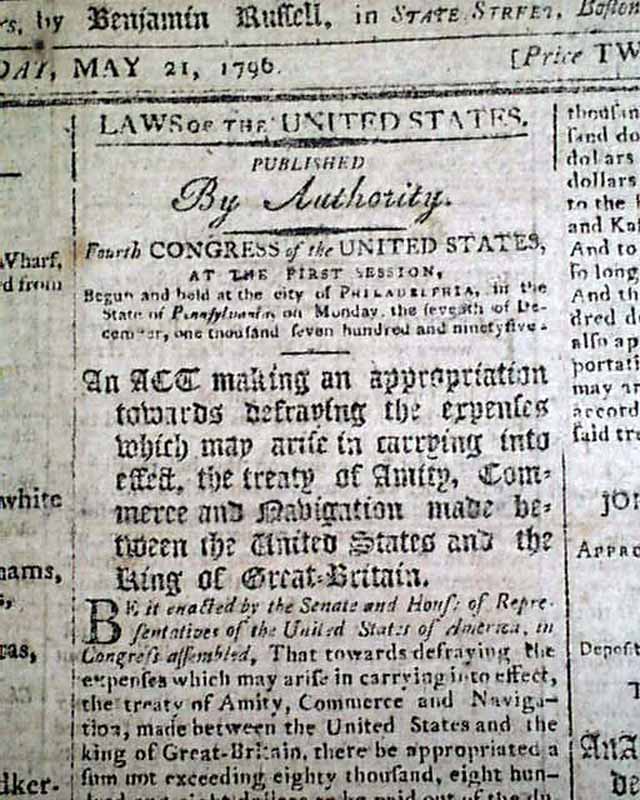 by Benjamin Ruſſell, in STATE STREET, Boſton
DAY, MAY 21, 1796. [Price TW
LAWS OF THE UNITED STATES.
PUBLISHED
By Authority.
Fourth CONGRESS of the UNITED STATES,
AT THE FIRST SESSION,
Begun and held at the city of PHILADELPHIA, in the
State of Pennſylvania, on Monday, the ſeventh of De-
cember, one thouſand ſeven hundred and ninetyfive.
An ACT making an appropriation
towards defraying the expenſes
which may ariſe in carrying into
effect, the treaty of Amity, Com-
merce and Navigation made be-
tween the United States and the
King of Great-Britain.
BE it enacted by the Senate and Houſe of Repre-
ſentatives of the United States of America, in
Congreſs aſſembled, That towards defraying the
expenſes which may ariſe in carrying into effect,
the treaty of Amity, Commerce and Naviga-
tion, made between the United States and the
king of Great-Britain, there be appropriated a
ſum not exceeding eighty thouſand, eight hun-
Wharf,
ed from
white
hams,
ras,
ker-
thouſan
ſand do
dollars
dollars
to the
and Kat
And to
ſo long
And th
dred d
alſo ap
portati
may ar
accord
ſaid tra
JO
APPRO
Depoſ
T
AnA